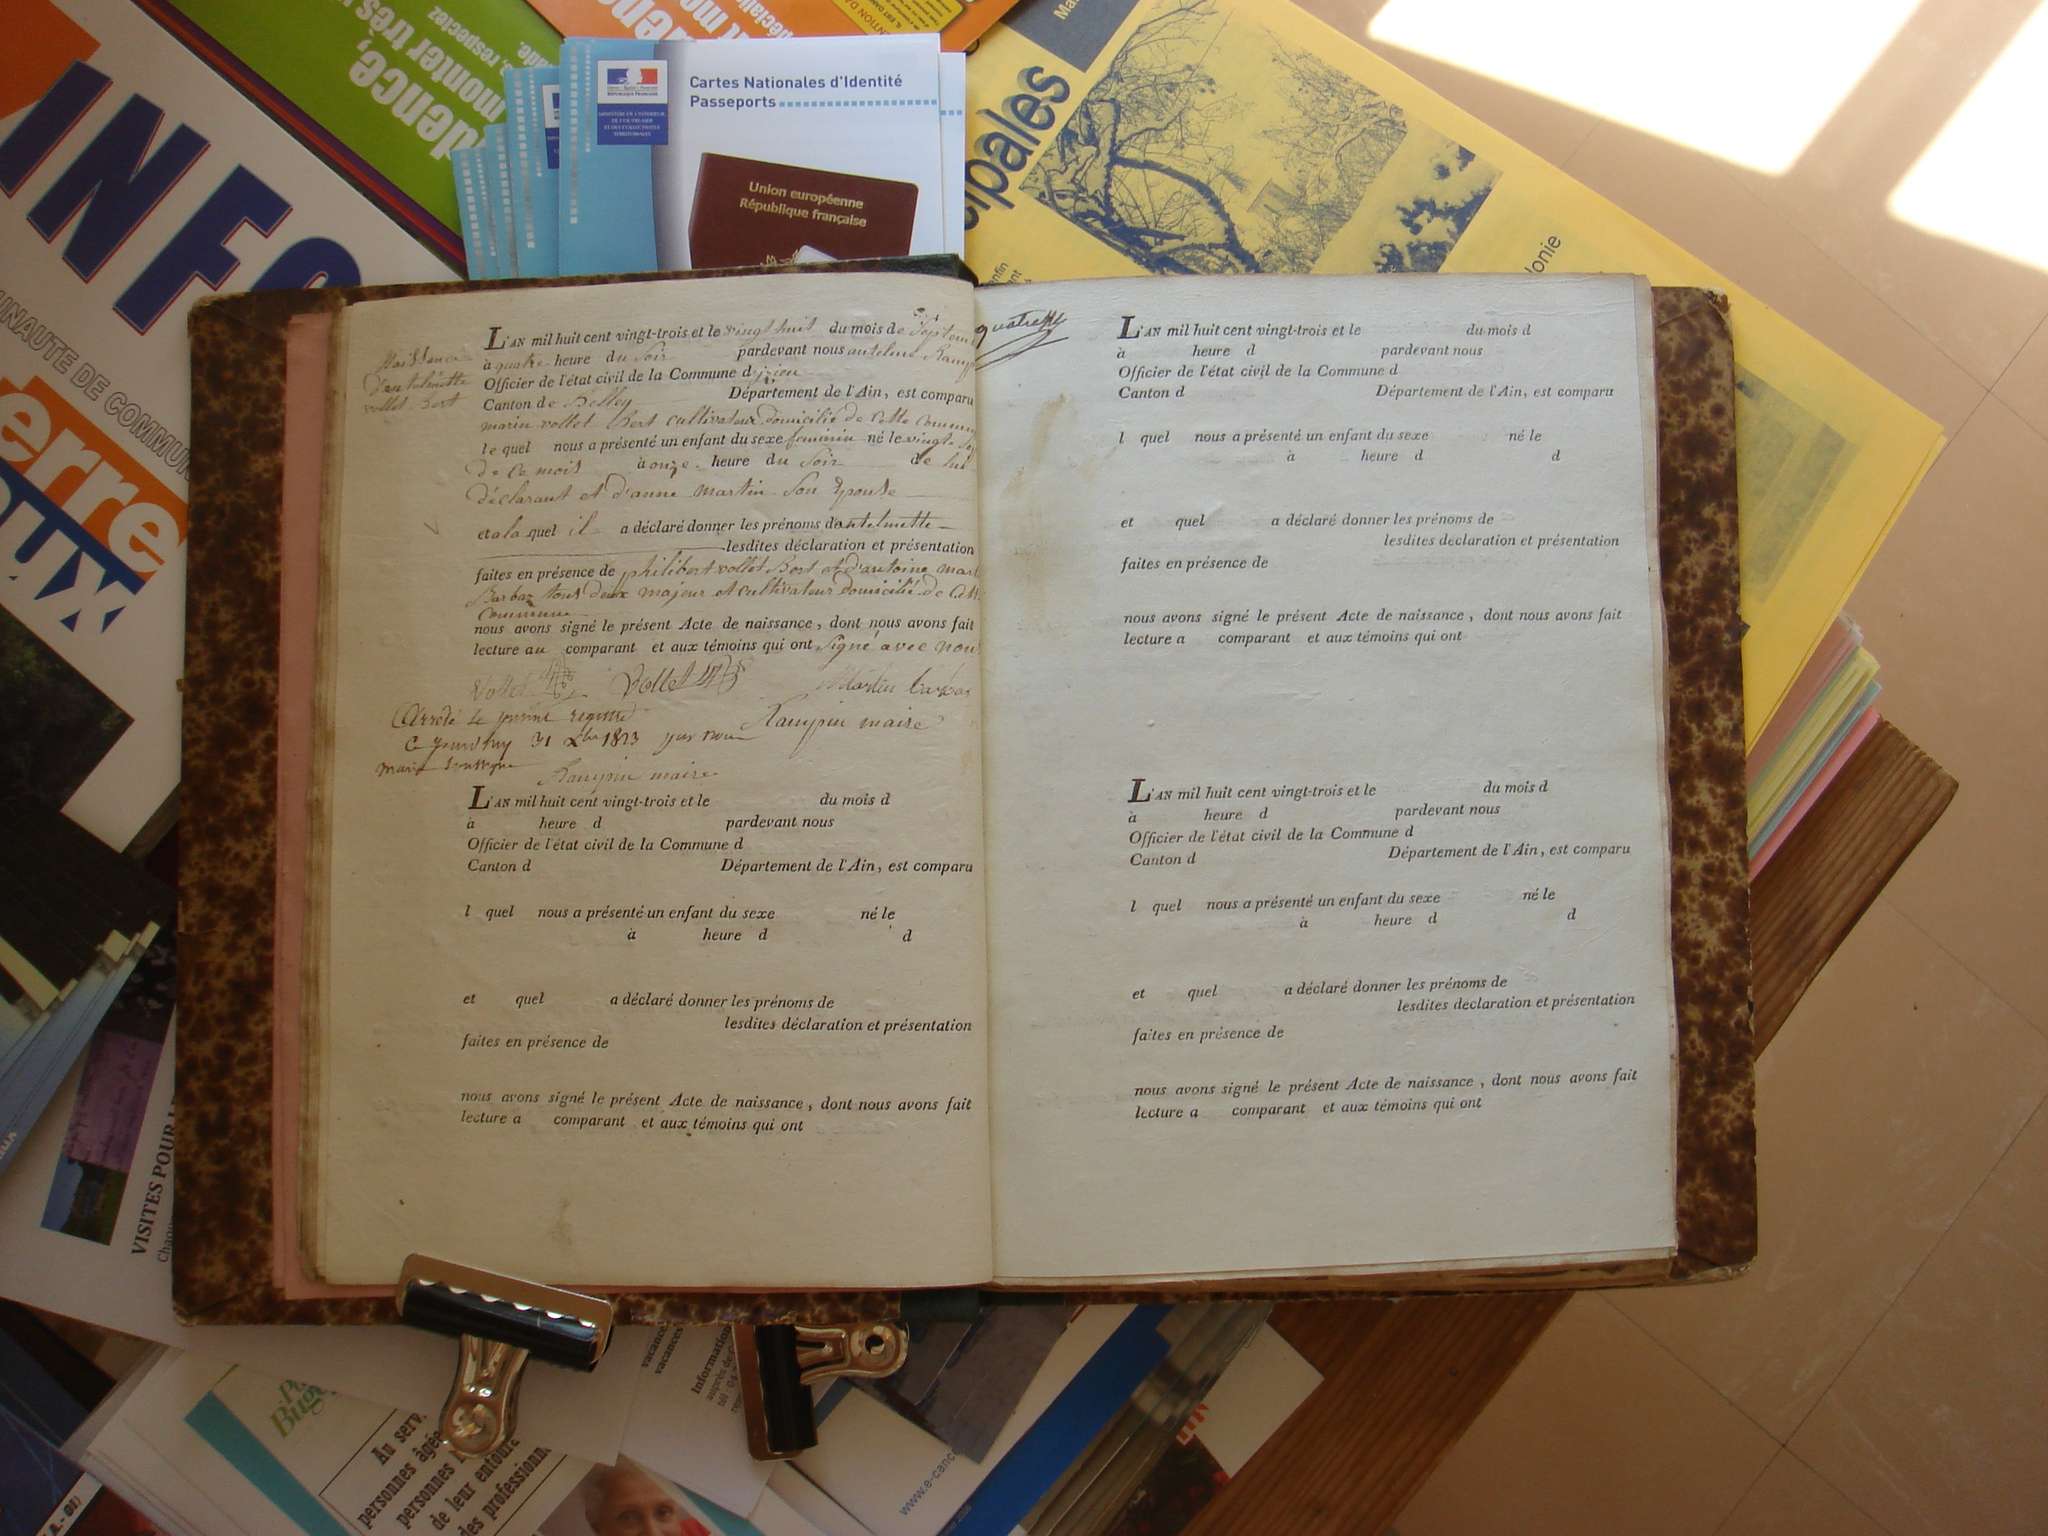 INFO
UNAUTE DE COMMUN
erre
oux
dence,
monter très
, respectez
nde.
Cartes Nationales d'Identité
Passeports
RÉPUBLIQUE FRANÇAISE
MINISTÈRE DE L'INTÉRIEUR
DE L'OUTRE-MER
ET DES COLLECTIVITÉS
TERRITORIALES
Union européenne
République française
cipales
lonie
Naissance
d'antelmette
vollet-bert
L'AN mil huit cent vingt-trois et le vingt huit du mois de Septem
à quatre heure du Soir pardevant nous antelme Rampi
Officier de l'état civil de la Commune d
Canton de Belley Département de l'Ain, est comparu
marin vollet bert cultivateur domicilié de cette commun
le quel nous a présenté un enfant du sexe feminin né le vingt Sep
de ce mois à onze heure du Soir de lui
déclarant et d'anne martin Son Epouse
et a la quel il a déclaré donner les prénoms de antelmette
lesdites déclaration et présentation
faites en présence de philibert vollet bert et d'antoine mart
Barbaz tous deux majeur et cultivateur domicilié de cette
commune
nous avons signé le présent Acte de naissance, dont nous avons fait
lecture au comparant et aux témoins qui ont signé avec nou
Vollet Vollet Martin barbaz
Rampin maire
Arreté le present registre
ce jourd'huy 31 Xbre 1823 par nous
maire soussigné
Rampin maire
L'AN mil huit cent vingt-trois et le du mois d
à heure d pardevant nous
Officier de l'état civil de la Commune d
Canton d Département de l'Ain, est comparu
l quel nous a présenté un enfant du sexe né le
à heure d d
et quel a déclaré donner les prénoms de
lesdites déclaration et présentation
faites en présence de
nous avons signé le présent Acte de naissance, dont nous avons fait
lecture a comparant et aux témoins qui ont
L'AN mil huit cent vingt-trois et le du mois d
à heure d pardevant nous
Officier de l'état civil de la Commune d
Canton d Département de l'Ain, est comparu
l quel nous a présenté un enfant du sexe né le
à heure d d
et quel a déclaré donner les prénoms de
lesdites déclaration et présentation
faites en présence de
nous avons signé le présent Acte de naissance, dont nous avons fait
lecture a comparant et aux témoins qui ont
L'AN mil huit cent vingt-trois et le du mois d
à heure d pardevant nous
Officier de l'état civil de la Commune d
Canton d Département de l'Ain, est comparu
l quel nous a présenté un enfant du sexe né le
à heure d d
et quel a déclaré donner les prénoms de
lesdites déclaration et présentation
faites en présence de
nous avons signé le présent Acte de naissance, dont nous avons fait
lecture a comparant et aux témoins qui ont
VISITES POUR
Au serv
personnes âgée
personnes
de leur entoura
des professionn
vacance
vacances
Information
auprès de
www.e-canc